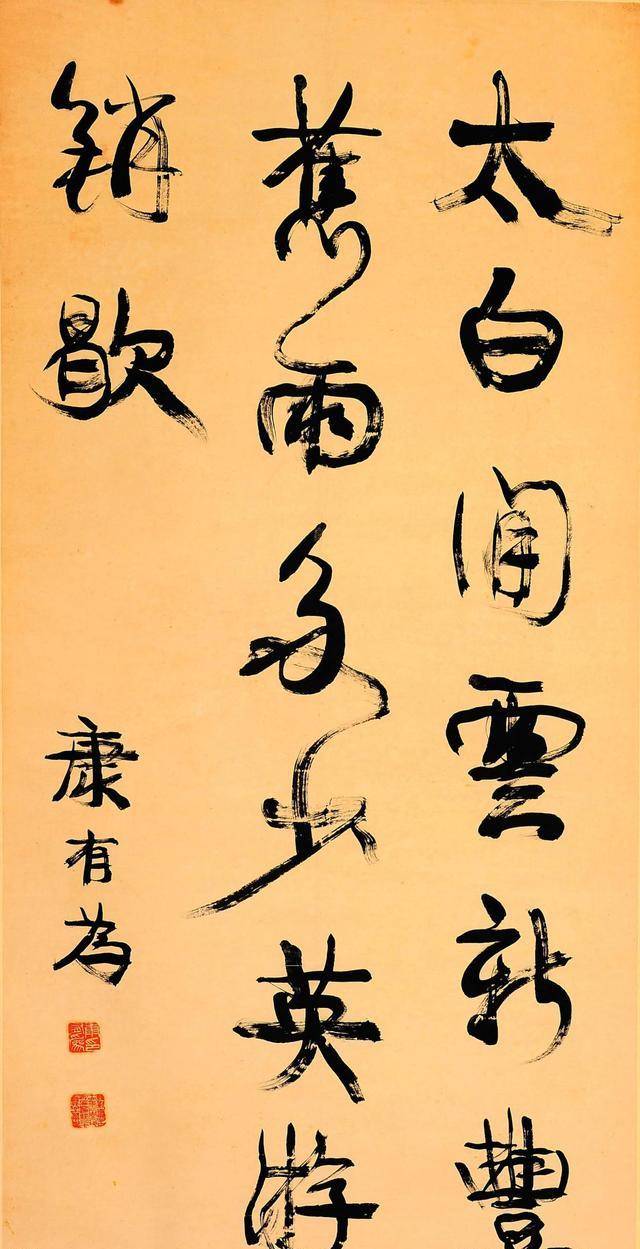 太白閒雲新豐
舊雨多少英游
銷歇
康有為